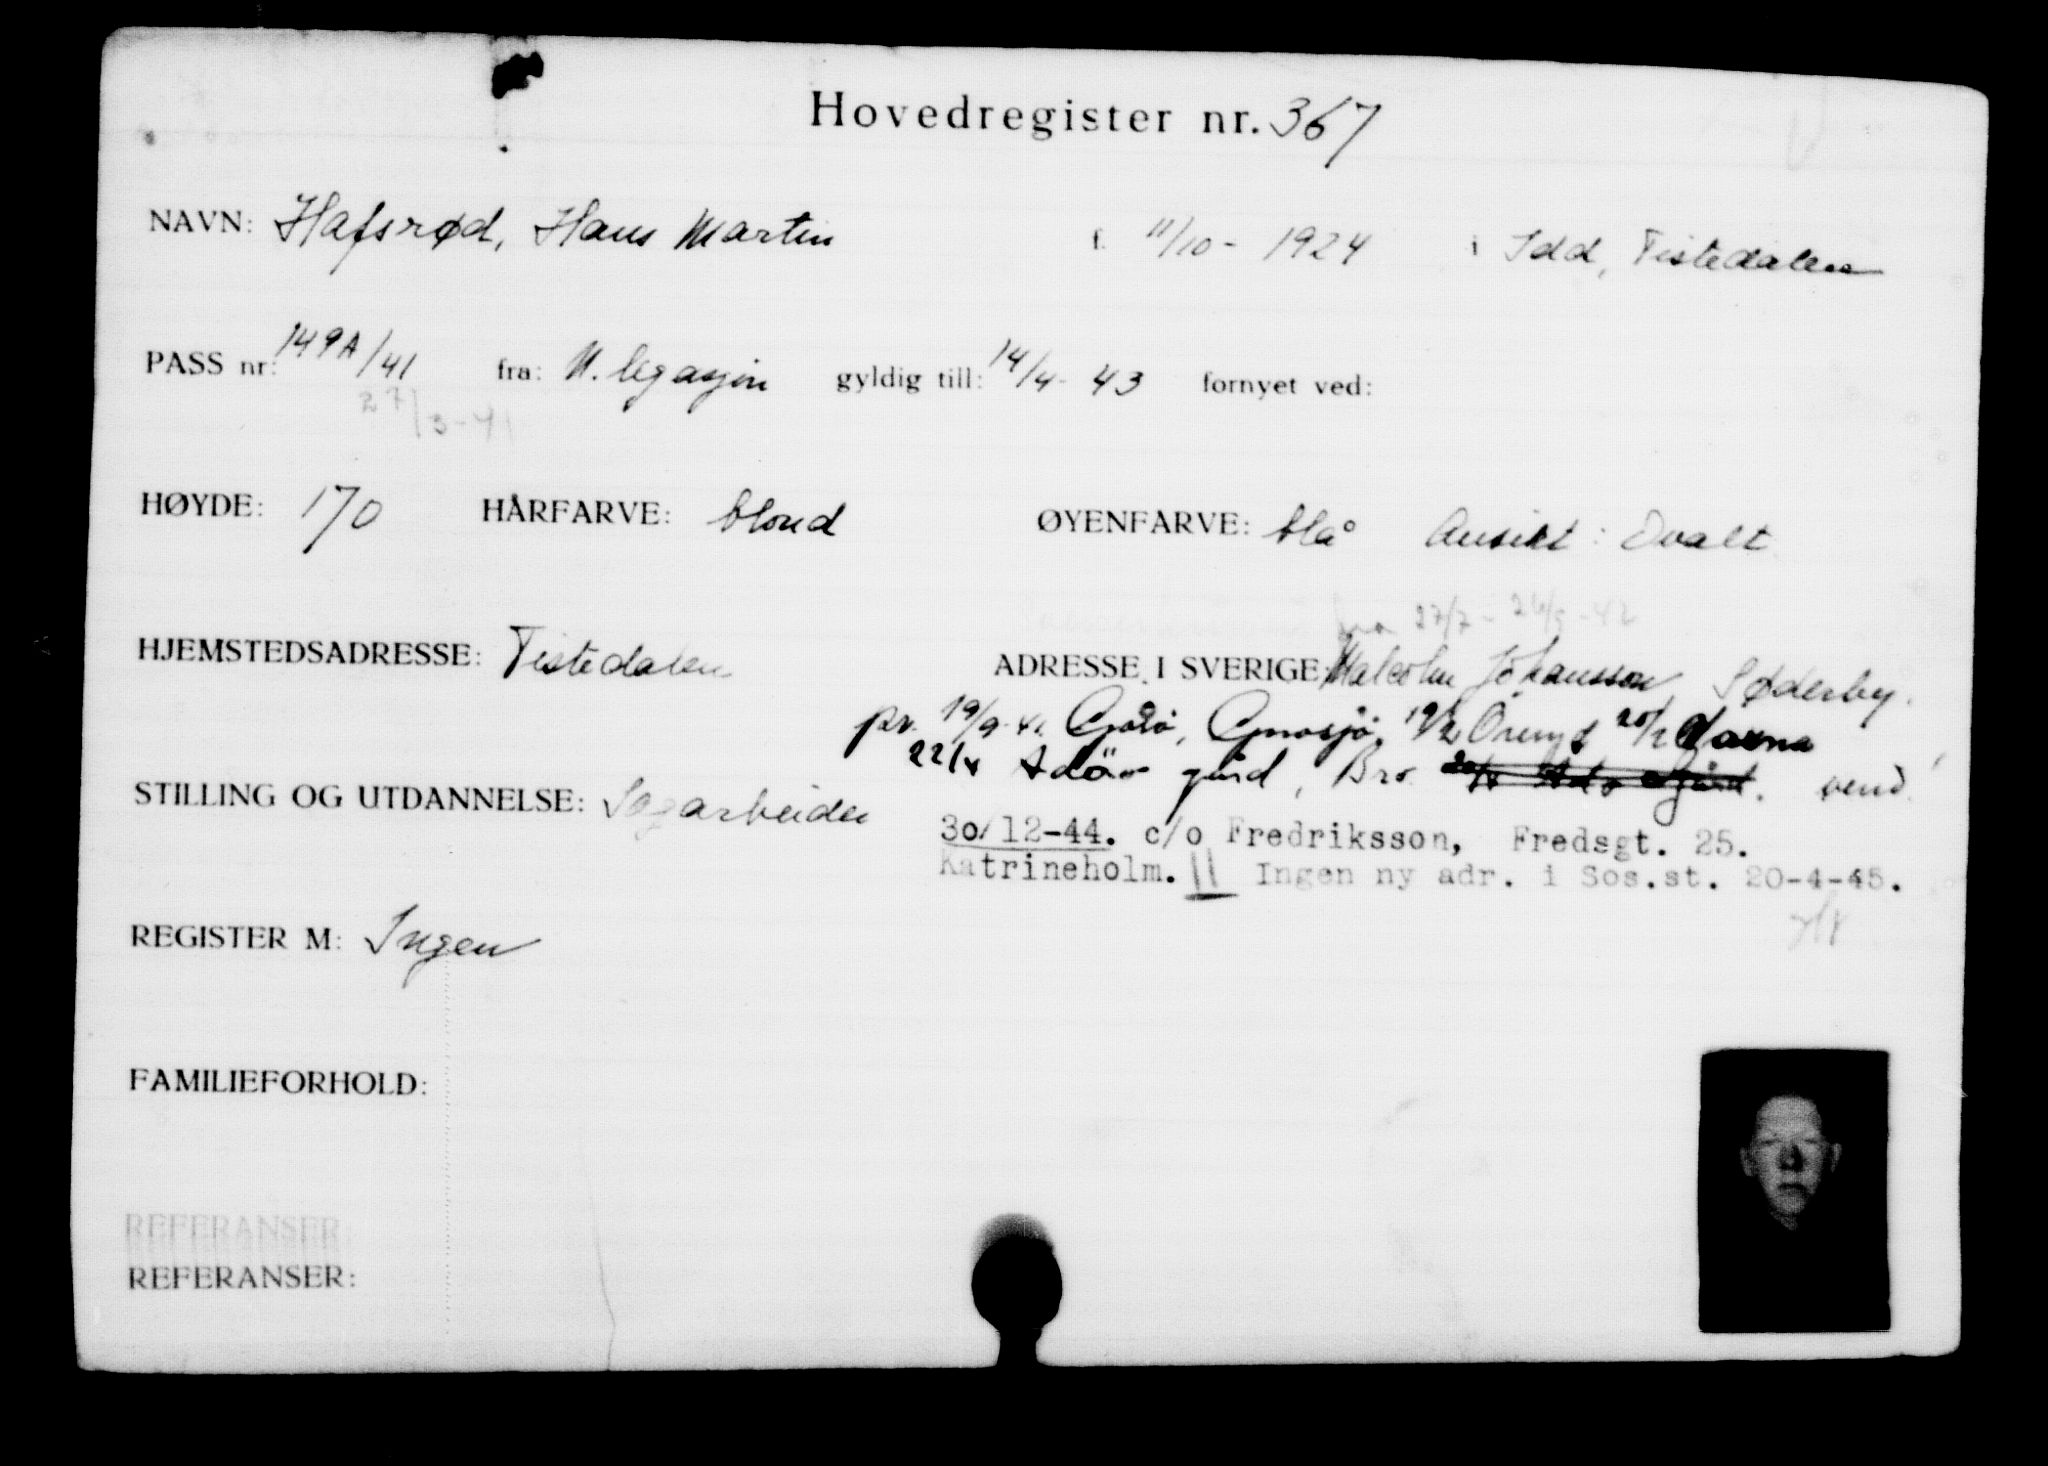 Hovedregister nr. 367
NAVN: Hafsrød, Hans Martin f. 11/10 - 1924 i Idd, Tistedalen
PASS nr: 149A/41 fra: N. legasjon gyldig till: 14/4 - 43 fornyet ved:
27/3-41
HØYDE: 170 HÅRFARVE: blond ØYENFARVE: blå Ansikt: Ovalt
fra 27/7 -
HJEMSTEDSADRESSE: Tistedalen ADRESSE I SVERIGE: Malcolm Johansson, Søderby.
pr. 19/9-41 Gnosjö,
22/4 gård, Bro. vend.
STILLING OG UTDANNELSE: Sagarbeider
30/12-44. c/o Fredriksson, Fredsgt. 25.
Katrineholm. || Ingen ny adr. i Sos.st. 20-4-45.
REGISTER M: Ingen
FAMILIEFORHOLD:
REFERANSER:
REFERANSER: